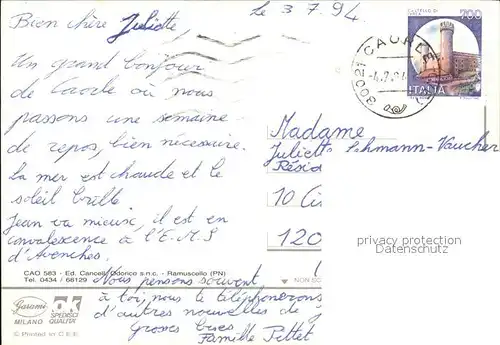 Le 3 7.94
Bien chère Juliette,
Un grand bonjour
de Caorle où nous
passons une semaine
de repos, bien nécessaire.
La mer est chaude et le
soleil brille
Jean va mieux, il est en
convalescence à l'E.M.S
d'Avenches.
Nous pensons souvent
à toi, nous te téléphonerons
d'autres nouvelles de
Grosses bises
Famille Pittet
CASTELLO DI
700
ITALIA
30021 CAORLE
Madame
Juliette Schmann-Vaucher
Résid
10 C
120
privacy protection
Datenschutz
CAO 583 - Ed. Cancell. Odorico s.n.c. - Ramuscello (PN)
Tel. 0434 / 68129
NON SC
Garami
MILANO
SPEDISCI
QUALITA'
© Printed in C E E